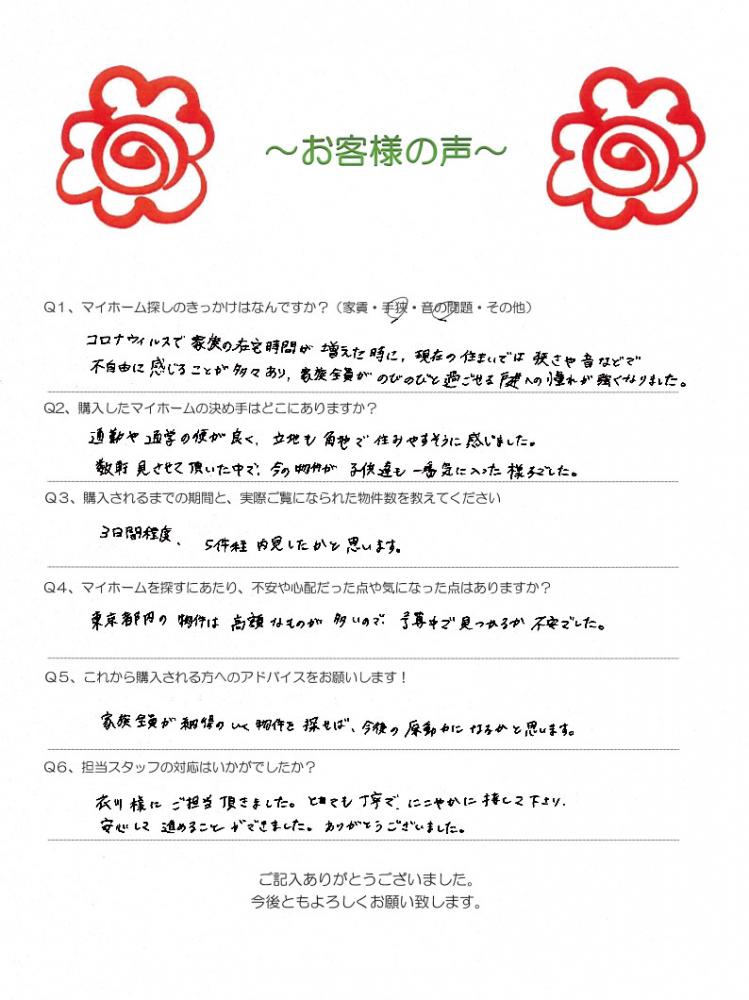 ～お客様の声～
Q1、マイホーム探しのきっかけはなんですか？（家賃・手狭・音の問題・その他）
コロナウィルスで家族の在宅時間が増えた時に、現在の住まいでは狭さや音などで
不自由に感じることが多々あり、家族全員がのびのびと過ごせる家への憧れが強くなりました。
Q2、購入したマイホームの決め手はどこにありますか？
通勤や通学の便が良く、立地も角地で住みやすそうに感じました。
数軒見させて頂いた中で、今の物件が子供達も一番気に入った様子でした。
Q3、購入されるまでの期間と、実際ご覧になられた物件数を教えてください
3日間程度、5件程内見したかと思います。
Q4、マイホームを探すにあたり、不安や心配だった点や気になった点はありますか？
東京都内の物件は高額なものが多いので、予算中で見つかるか不安でした。
Q5、これから購入される方へのアドバイスをお願いします！
家族全員が納得のいく物件を探せば、今後の原動力になるかと思います。
Q6、担当スタッフの対応はいかがでしたか？
衣川様にご担当頂きました。とても丁寧で、にこやかに接して下さり、
安心して進めることができました。ありがとうございました。
ご記入ありがとうございました。
今後ともよろしくお願い致します。